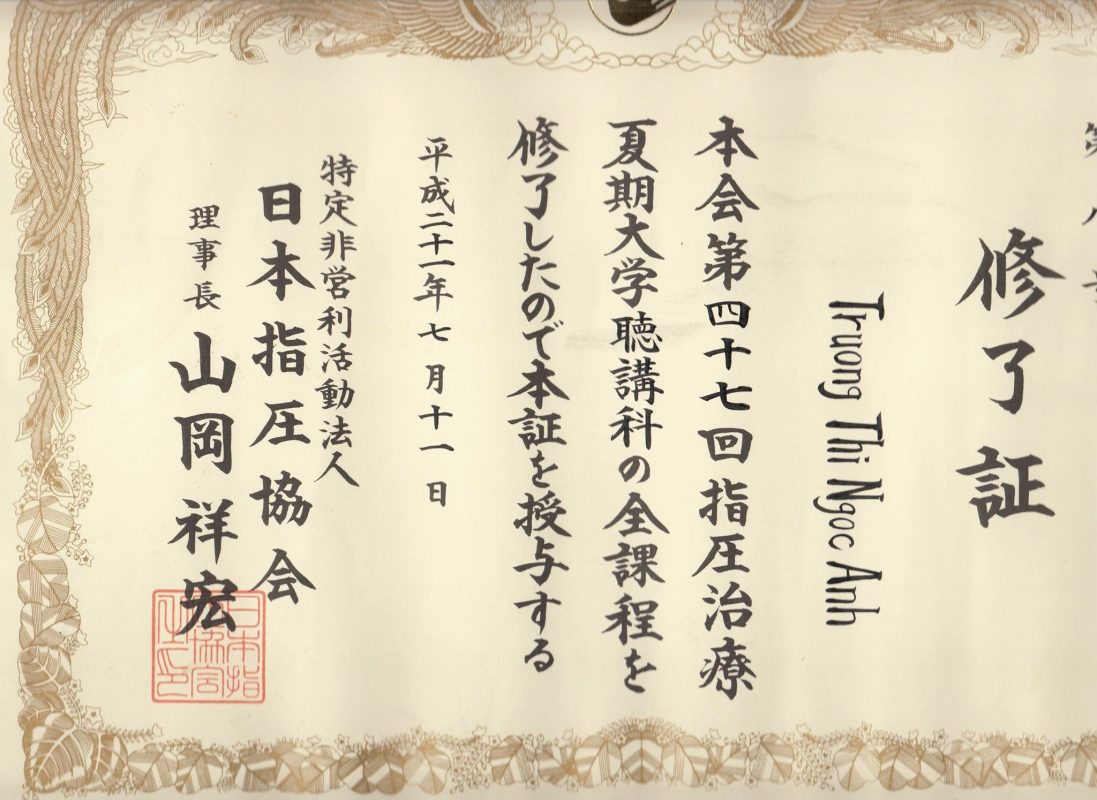 修了証
Truong Thi Ngoc Anh
本会第四十七回指圧治療
夏期大学聴講科の全課程を
修了したので本証を授与する
平成二十一年七月十一日
特定非営利活動法人
日本指圧協会
理事長 山岡祥宏